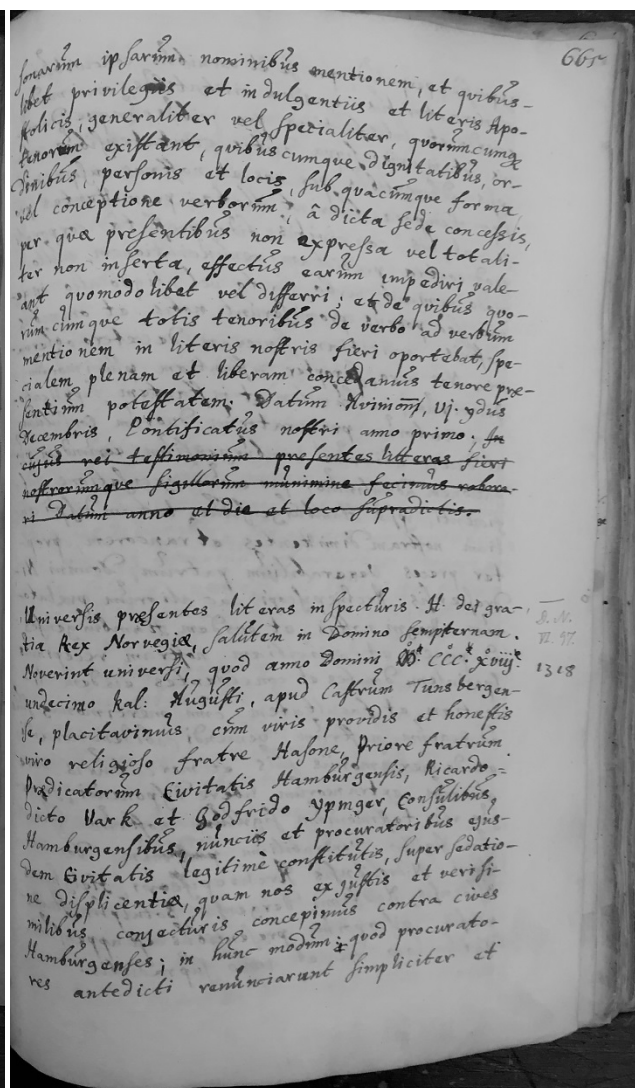 665
sonarum ipsarum nominibus mentionem, et quibus-
libet privilegiis et indulgentiis et literis Apo-
stolicis, generaliter vel specialiter, quorumcumqz
tenorum existant, quibuscumque dignitatibus, or-
dinibus, personis et locis, sub quacumque forma
vel conceptione verborum, â dicta sede concessis,
per quæ presentibus non expressa vel totali-
ter non inserta, effectus earum impediri vale-
ant quomodolibet vel differri; et de quibus quo-
rumcumque totis tenoribus de verbo ad verbum
mentionem in literis nostris fieri oportebat, spe-
cialem plenam et liberam concedamus tenore præ-
sentium potestatem. Datum Avinioni, Vj. ydus
Decembris, Pontificatus nostri anno primo. In
cujus rei testimonium presentes litteras fieri
nostrorumque sigillorum munimine fecimus robora-
ri Datum anno et die et loco supradictis.
Universis præsentes literas inspecturis. H. dei gra-
tia Rex Norvegiæ, salutem in Domino sempiternam.
Noverint universi, quod anno Domini M. CCC. Xviij.
undecimo kal: Augusti, apud Castrum Tunsbergen-
se, placitavimus, cum viris providis et honestis
viro religioso fratre Hasone, Priore fratrum
Prædicatorum Civitatis Hamburgensis, Ricardo
dicto Vark et Godfrido Ypmger, Consulibus
Hamburgensibus, nunciis et procuratoribus ejus-
dem Civitatis legitimè constitutis, super sedatio-
ne displicentiæ, quam nos ex justis et verisi-
milibus conjecturis concepimus contra cives
Hamburgenses; in hunc modum: quod procurato-
res antedicti renunciarunt simpliciter et
D. N.
VI. 97.
1318